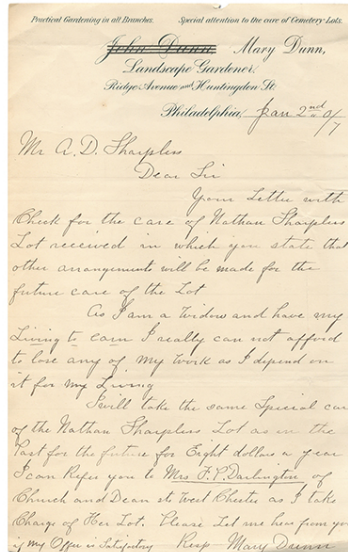 Practical Gardening in all Branches. Special attention to the care of Cemetery Lots.
John Dunn Mary Dunn,
Landscape Gardener,
Ridge Avenue and Huntingdon St.
Philadelphia, Jan 2nd 0/7
Mr A. D. Sharpless
Dear Sir
Your Letter with
Check for the care of Nathan Sharpless
Lot received in which you state that
other arrangements will be made for the
future care of the Lot
As I am a Widow and have my
Living to earn I really can not afford
to lose any of my work as I depend on
it for my Living
I will take the same Special car
of the Nathan Sharpless Lot as in the
Past for the future for Eight dollars a year
I can Refer you to Mrs F. P. Darlington of
Church and Dean st West Chester as I take
Charge of Her Lot. Please Let me hear from you
if my Offer is Satisfactory Resp Mary Dunn